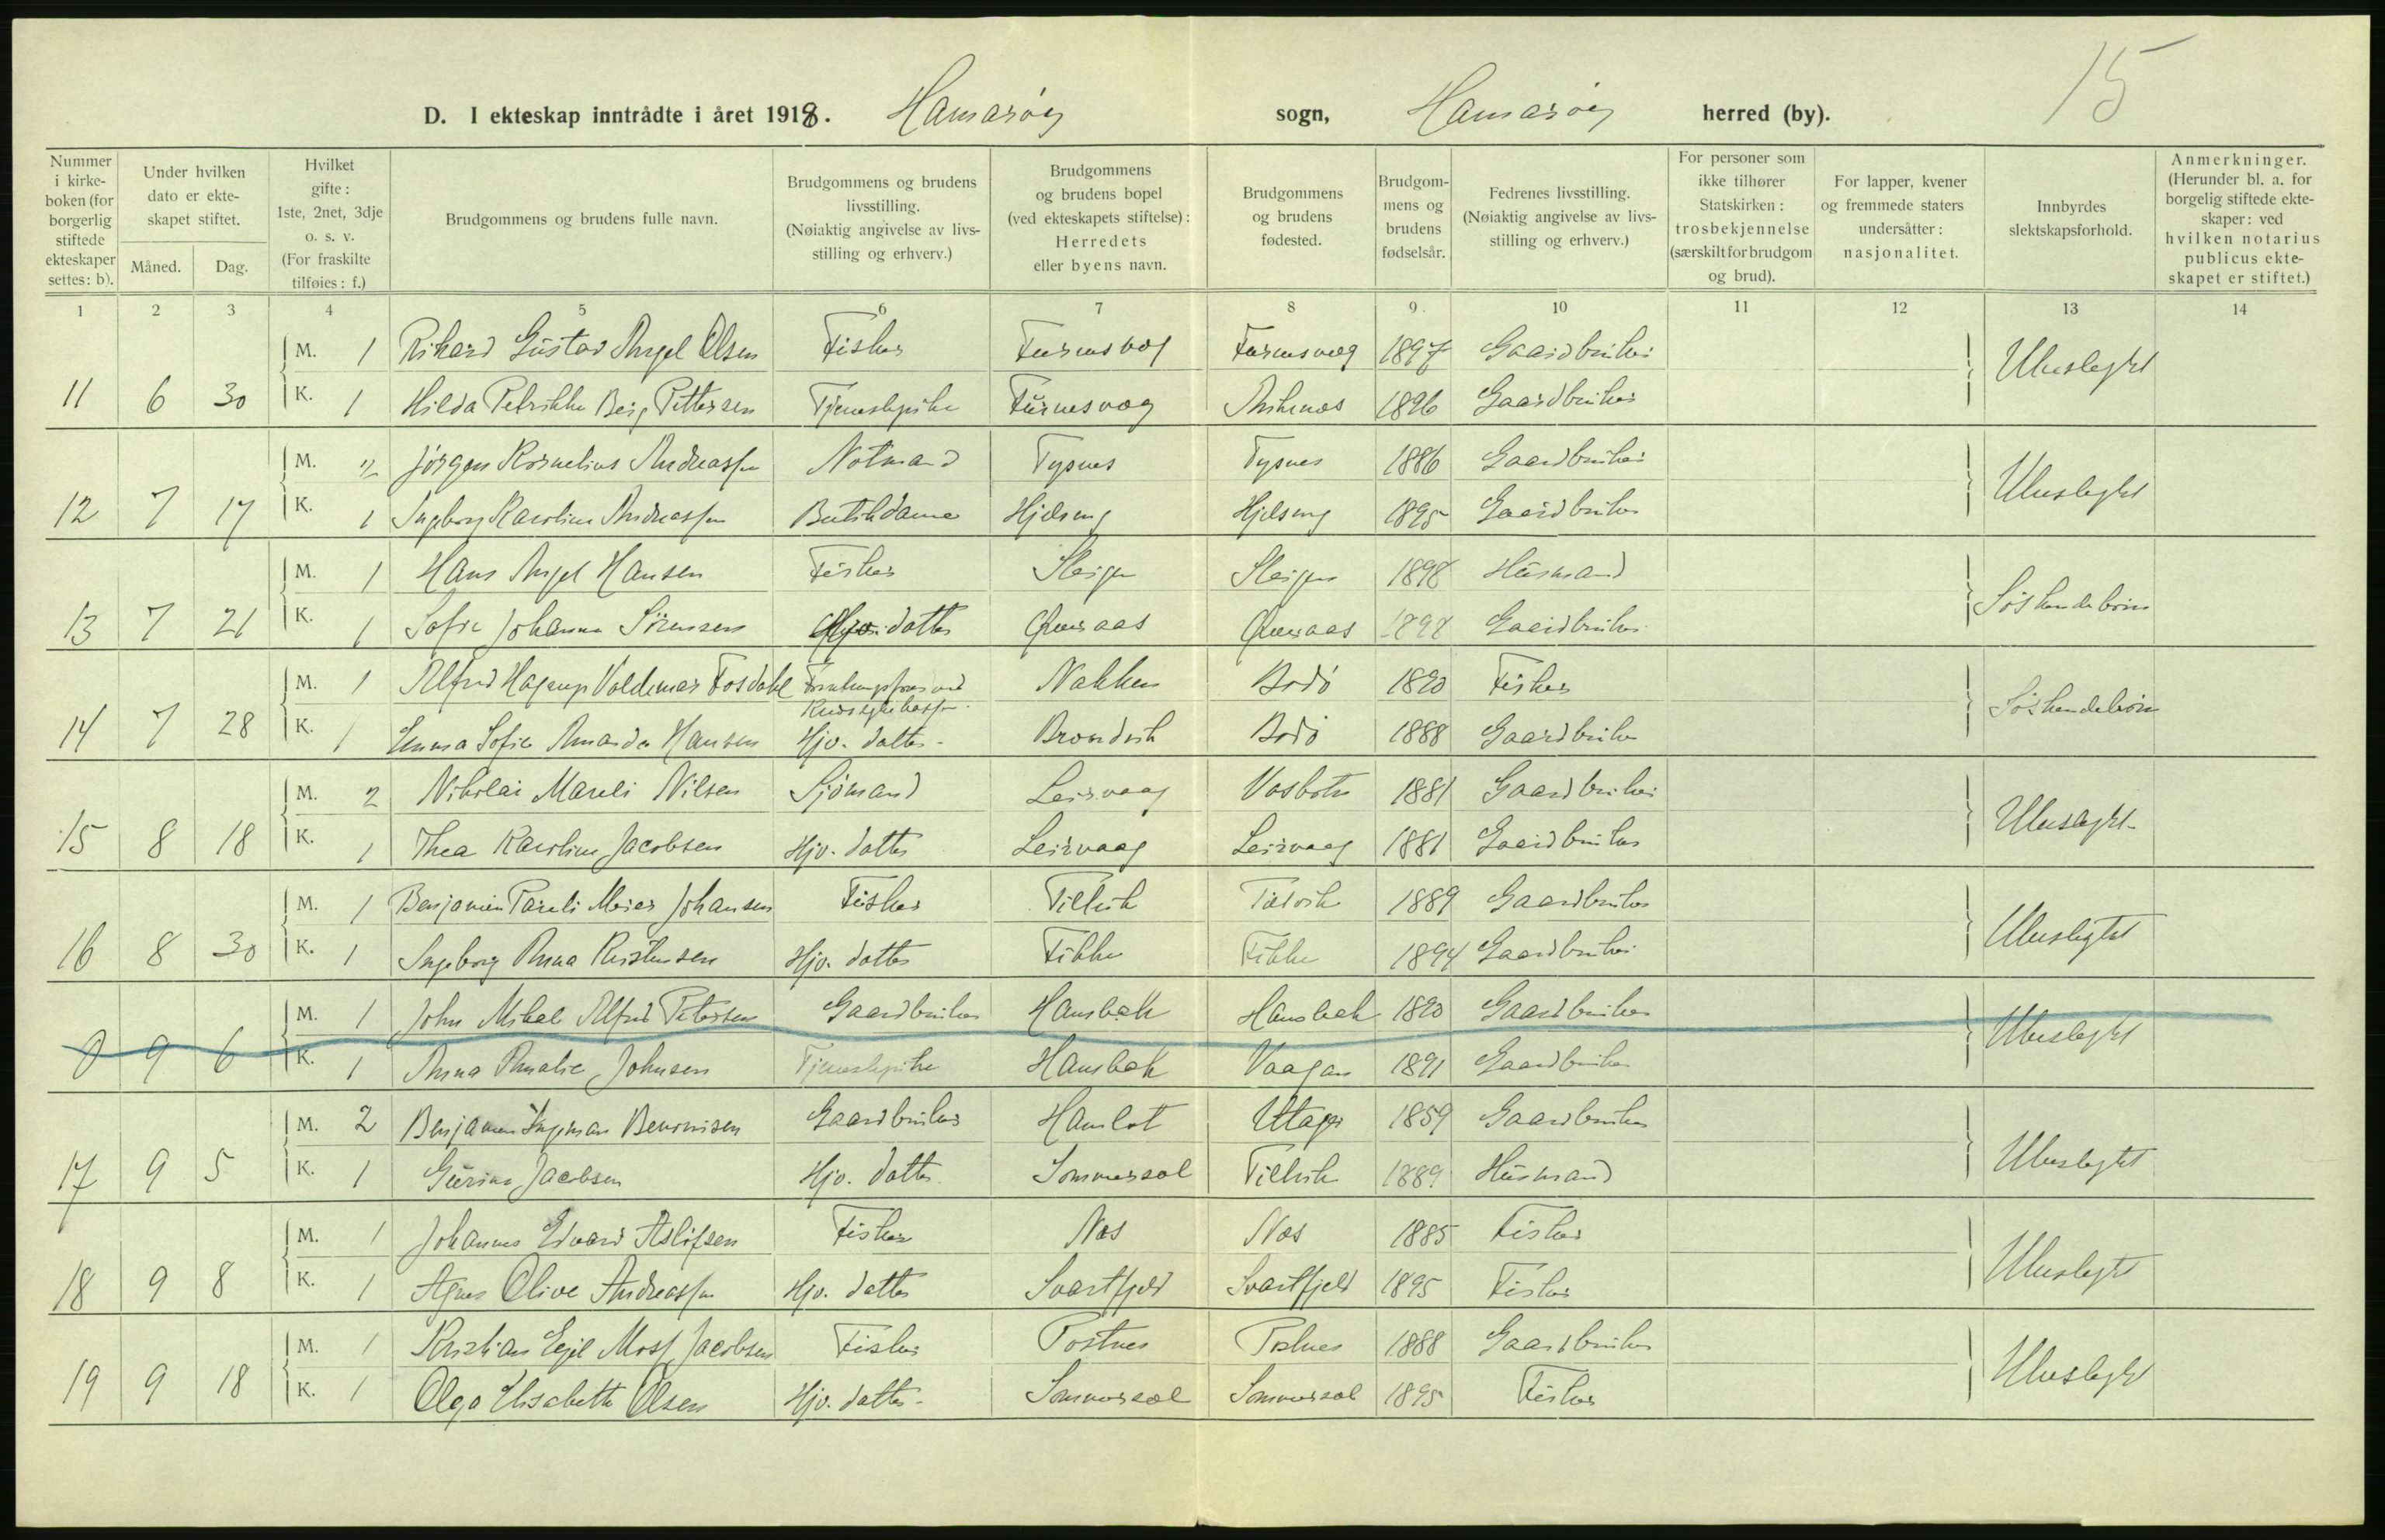 15
D. I ekteskap inntrådte i året 1918. Hamarøy sogn, Hamarøy herred (by).
Nummer i kirke-boken (for borgerlig stiftede ekteskaper settes: b). Under hvilken dato er ekte-skapet stiftet. Måned. Dag. Hvilket gifte: 1ste, 2net, 3dje o. s. v. (For fraskilte tilføies: f.) Brudgommens og brudens fulle navn. Brudgommens og brudens livsstilling. (Nøiaktig angivelse av livs-stilling og erhverv.) Brudgommens og brudens bopel (ved ekteskapets stiftelse): Herredets eller byens navn. Brudgommens og brudens fødested. Brudgom-mens og brudens fødselsår. Fedrenes livsstilling. (Nøiaktig angivelse av livs-stilling og erhverv.) For personer som ikke tilhører Statskirken: trosbekjennelse (særskilt for brudgom og brud). For lapper, kvener og fremmede staters undersåtter: nasjonalitet. Innbyrdes slektskapsforhold. Anmerkninger. (Herunder bl. a. for borgelig stiftede ekte-skaper: ved hvilken notarius publicus ekte-skapet er stiftet.)
1 2 3 4 5 6 7 8 9. 10 11 12 13 14
M. 1 Rikard Gustav Angel Olsen Fisker Furnesvåg Furnesvåg 1897 Gaardbruker
11 6 30 K. 1 Hilda Petrikke Berg Pettersen Tjenestepike Furnesvåg 1896 Gaardbruker Ubeslegtet
M. 2 Jørgen Kornelius Andreassen Notmand Tysnes Tysnes 1886 Gaardbruker
12 7 17 K. 1 Ingeborg Karoline Andreassen Butikdame 1895 Gaardbruker Ubeslegtet
M. 1 Hans Angel Hansen Fisker Steigen Steigen 1898 Husmand
13 7 21 K. 1 Sofie Johanna Sørensen Hjv. datter 1898 Gaardbruker Søskendebørn
M. 1 Alfred Hagerup Valdemar Fosdahl Nakken Bodø 1890 Fisker
14 7 28 K. 1 Emma Sofie Amanda Hansen Hjv. datter Bodø 1888 Gaardbruker Søskendebørn
M. 2 Nikolai Mareli Nilsen Sjømand Leirvaag Vasbotn 1881 Gaardbruker
15 8 18 K. 1 Thea Karoline Jacobsen Hjv. datter Leirvaag Leirvaag 1881 Gaardbruker Ubeslegtet
M. 1 Benjamin Pareli Meier Johansen Fisker Tilthvik 1889 Gaardbruker
16 8 30 K. 1 Ingeborg Anna Kristensen Hjv. datter Fikke Fikke 1894 Gaardbruker Ubeslegtet
M. 1 John Mikal Alfred Petersen Gaardbruker Hamsbak Hamsbak 1890 Gaardbruker
0 9 6 K. 1 Anna Amalie Johnsen Tjenestepike Hamsbak Vaagan 1891 Gaardbruker Ubeslegtet
M. 2 Benjamin Ingeman Benonisen Gaardbruker Hamlot 1859 Gaardbruker
17 9 5 K. 1 Gurine Jacobsen Hjv. datter Sommersel 1889 Husmand Ubeslegtet
M. 1 Johannes Edvard Asløfsen Fisker Næs Næs 1885 Fisker
18 9 8 K. 1 Agnes Olive Andreassen Hjv. datter Svartfjeld Svartfjeld 1895 Fisker Ubeslegtet
M. 1 Kristian Egil Moss Jacobsen Fisker Postnes Postnes 1888 Gaardbruker
19 9 18 K. 1 Olga Elisabeth Olsen Hjv. datter Sommersel Sommersel 1895 Fisker Ubeslegtet